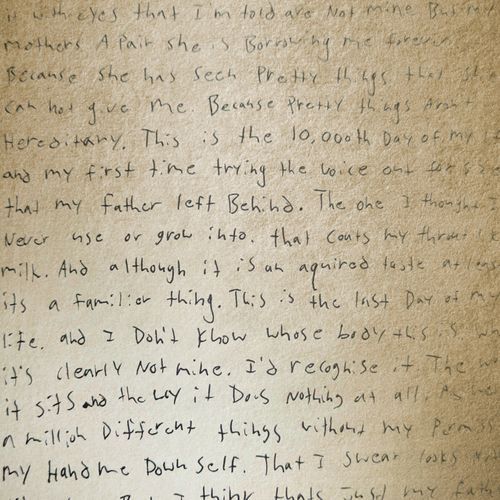 it with eyes that I'm told are Not mine But my
mothers A Pair she is Borrowing me forever
Because she has seen Pretty things that she
can not give me. Because Pretty things Aren't
Hereditary. This is the 10,000th Day of my
and my first time trying the voice out for size
that my father left Behind. The one I thought I
Never use or grow into. that coats my throat like
milk. And although it is an aquired taste at least
its a familier thing. This is the last Day of my
life. and I Don't know whose body this is
it's clearly Not mine. I'd recognise it The way
it sits and the way it Does nothing at all.
a million Different things without my Permiss
my Hand me Down self. That I swear looks
But I think thats Just my fath